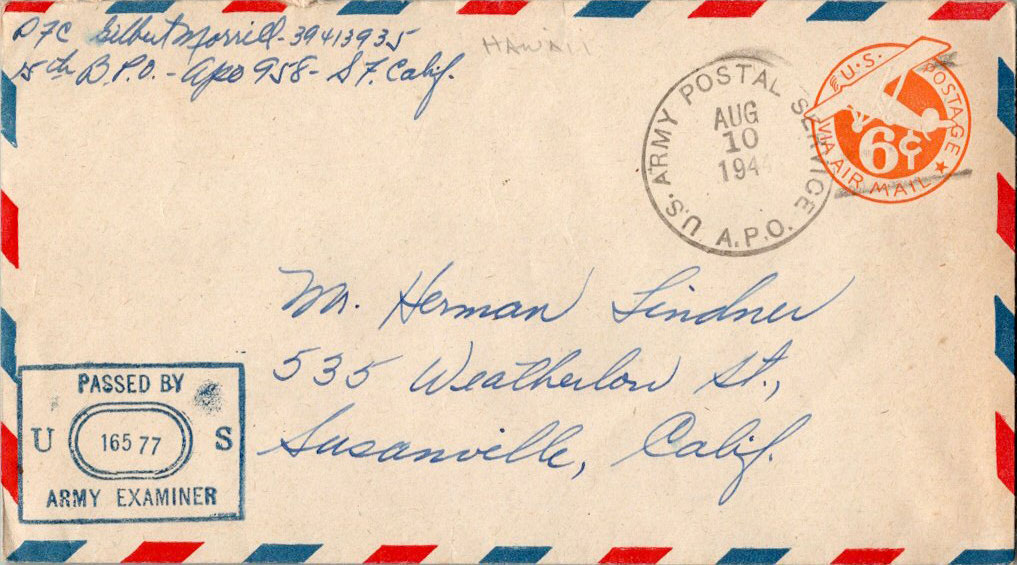 PFC Gilbert Morrill - 39413935
5th B.P.O. - Apo 958 - S F. Calif.
HAWAII
U.S. ARMY POSTAL SERVICE
AUG
10
194
A.P.O.
U.S. POSTAGE
6¢
VIA AIR MAIL
Mr. Herman Lindner
535 Weatherlow St.,
Susanville, Calif.
PASSED BY
U 165 77 S
ARMY EXAMINER